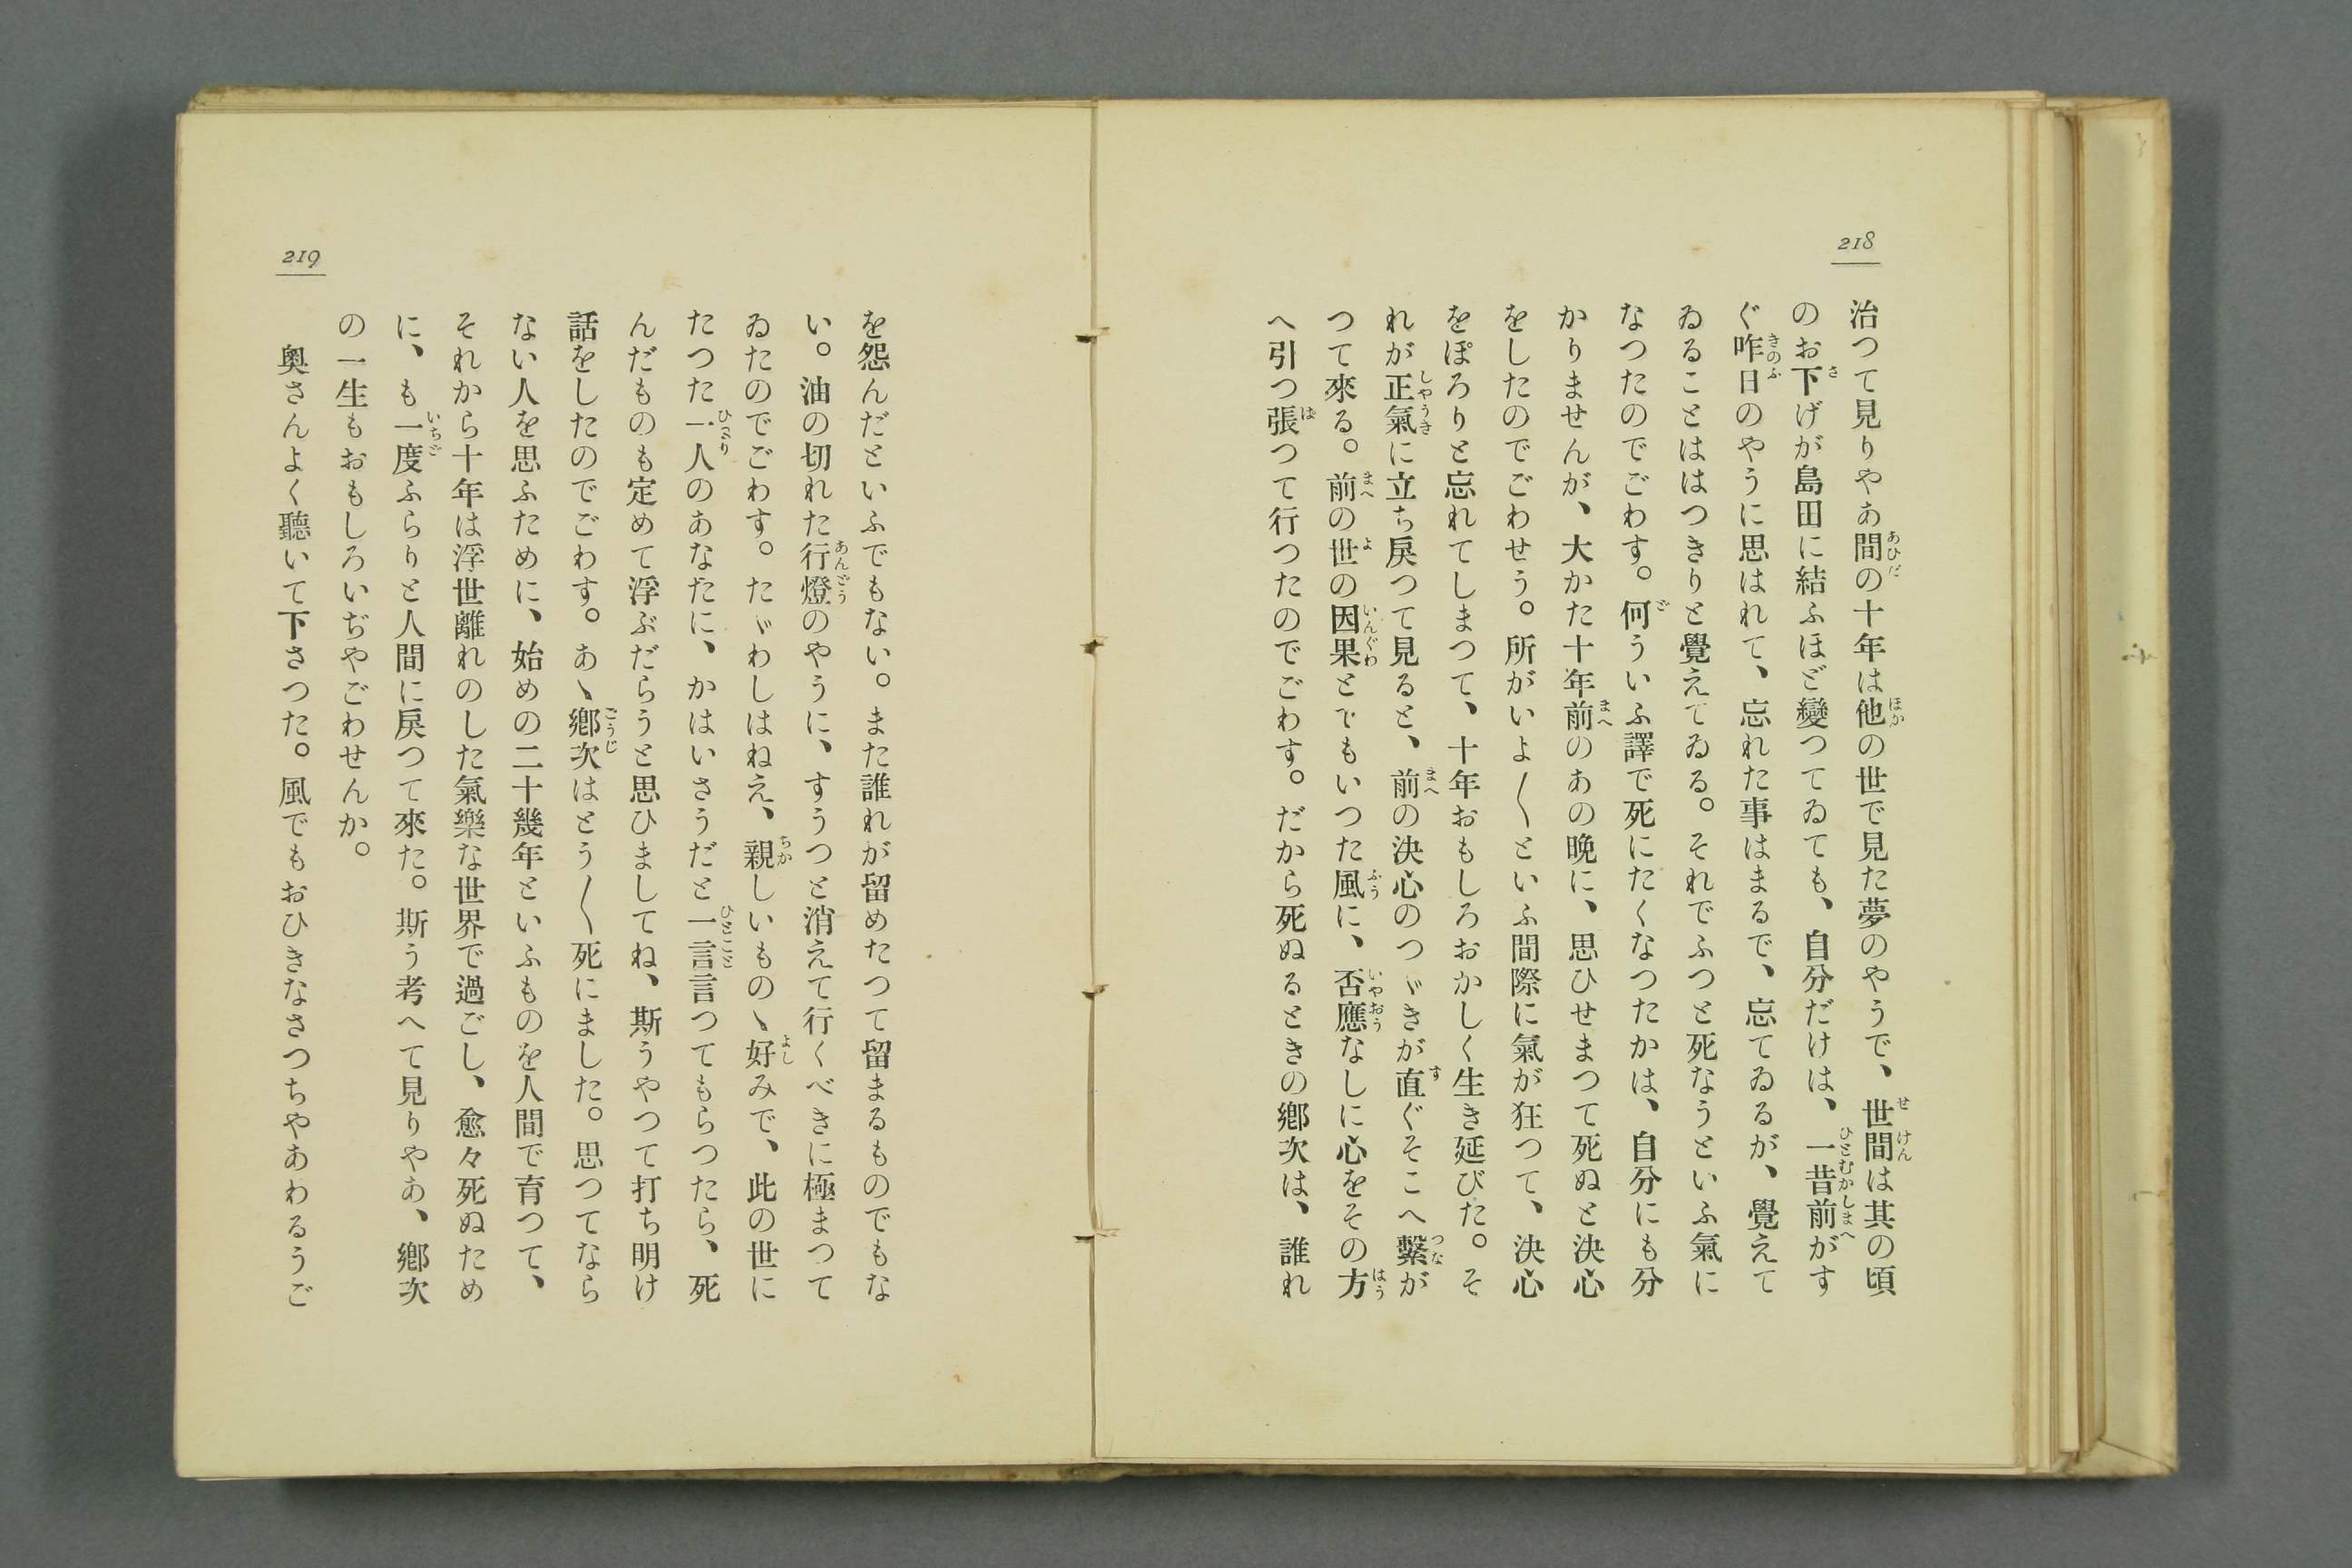 218
治つて見りやあ間の十年は他の世で見た夢のやうで、世間は其の頃
のお下げが島田に結ふほど變つてゐても、自分だけは、一昔前がす
ぐ昨日のやうに思はれて、忘れた事はまるで、忘てゐるが、覺えて
ゐることははつきりと覺えてゐる。それでふつと死なうといふ氣に
なつたのでごわす。何ういふ譯で死にたくなつたかは、自分にも分
かりませんが、大かた十年前のあの晩に、思ひせまつて死ぬと決心
をしたのでごわせう。所がいよ〱といふ間際に氣が狂つて、決心
をぽろりと忘れてしまつて、十年おもしろおかしく生き延びた。そ
れが正氣に立ち戻つて見ると、前の決心のつゞきが直ぐそこへ繫が
つて來る。前の世の因果とでもいつた風に、否應なしに心をその方
へ引つ張つて行つたのでごわす。だから死ぬるときの鄕次は、誰れ
219
を怨んだといふでもない。また誰れが留めたつて留まるものでもな
い。油の切れた行燈のやうに、すうつと消えて行くべきに極まつて
ゐたのでごわす。たゞわしはねえ、親しいものゝ好みで、此の世に
たつた一人のあなたに、かはいさうだと一言言つてもらつたら、死
んだものも定めて浮ぶだらうと思ひましてね、斯うやつて打ち明け
話をしたのでごわす。あゝ鄕次はとう〱死にました。思つてなら
ない人を思ふために、始めの二十幾年といふものを人間で育つて、
それから十年は浮世離れのした氣樂な世界で過ごし、愈々死ぬため
に、も一度ふらりと人間に戻つて來た。斯う考へて見りやあ、鄕次
の一生もおもしろいぢやごわせんか。
奧さんよく聽いて下さつた。風でもおひきなさつちやあわるうご